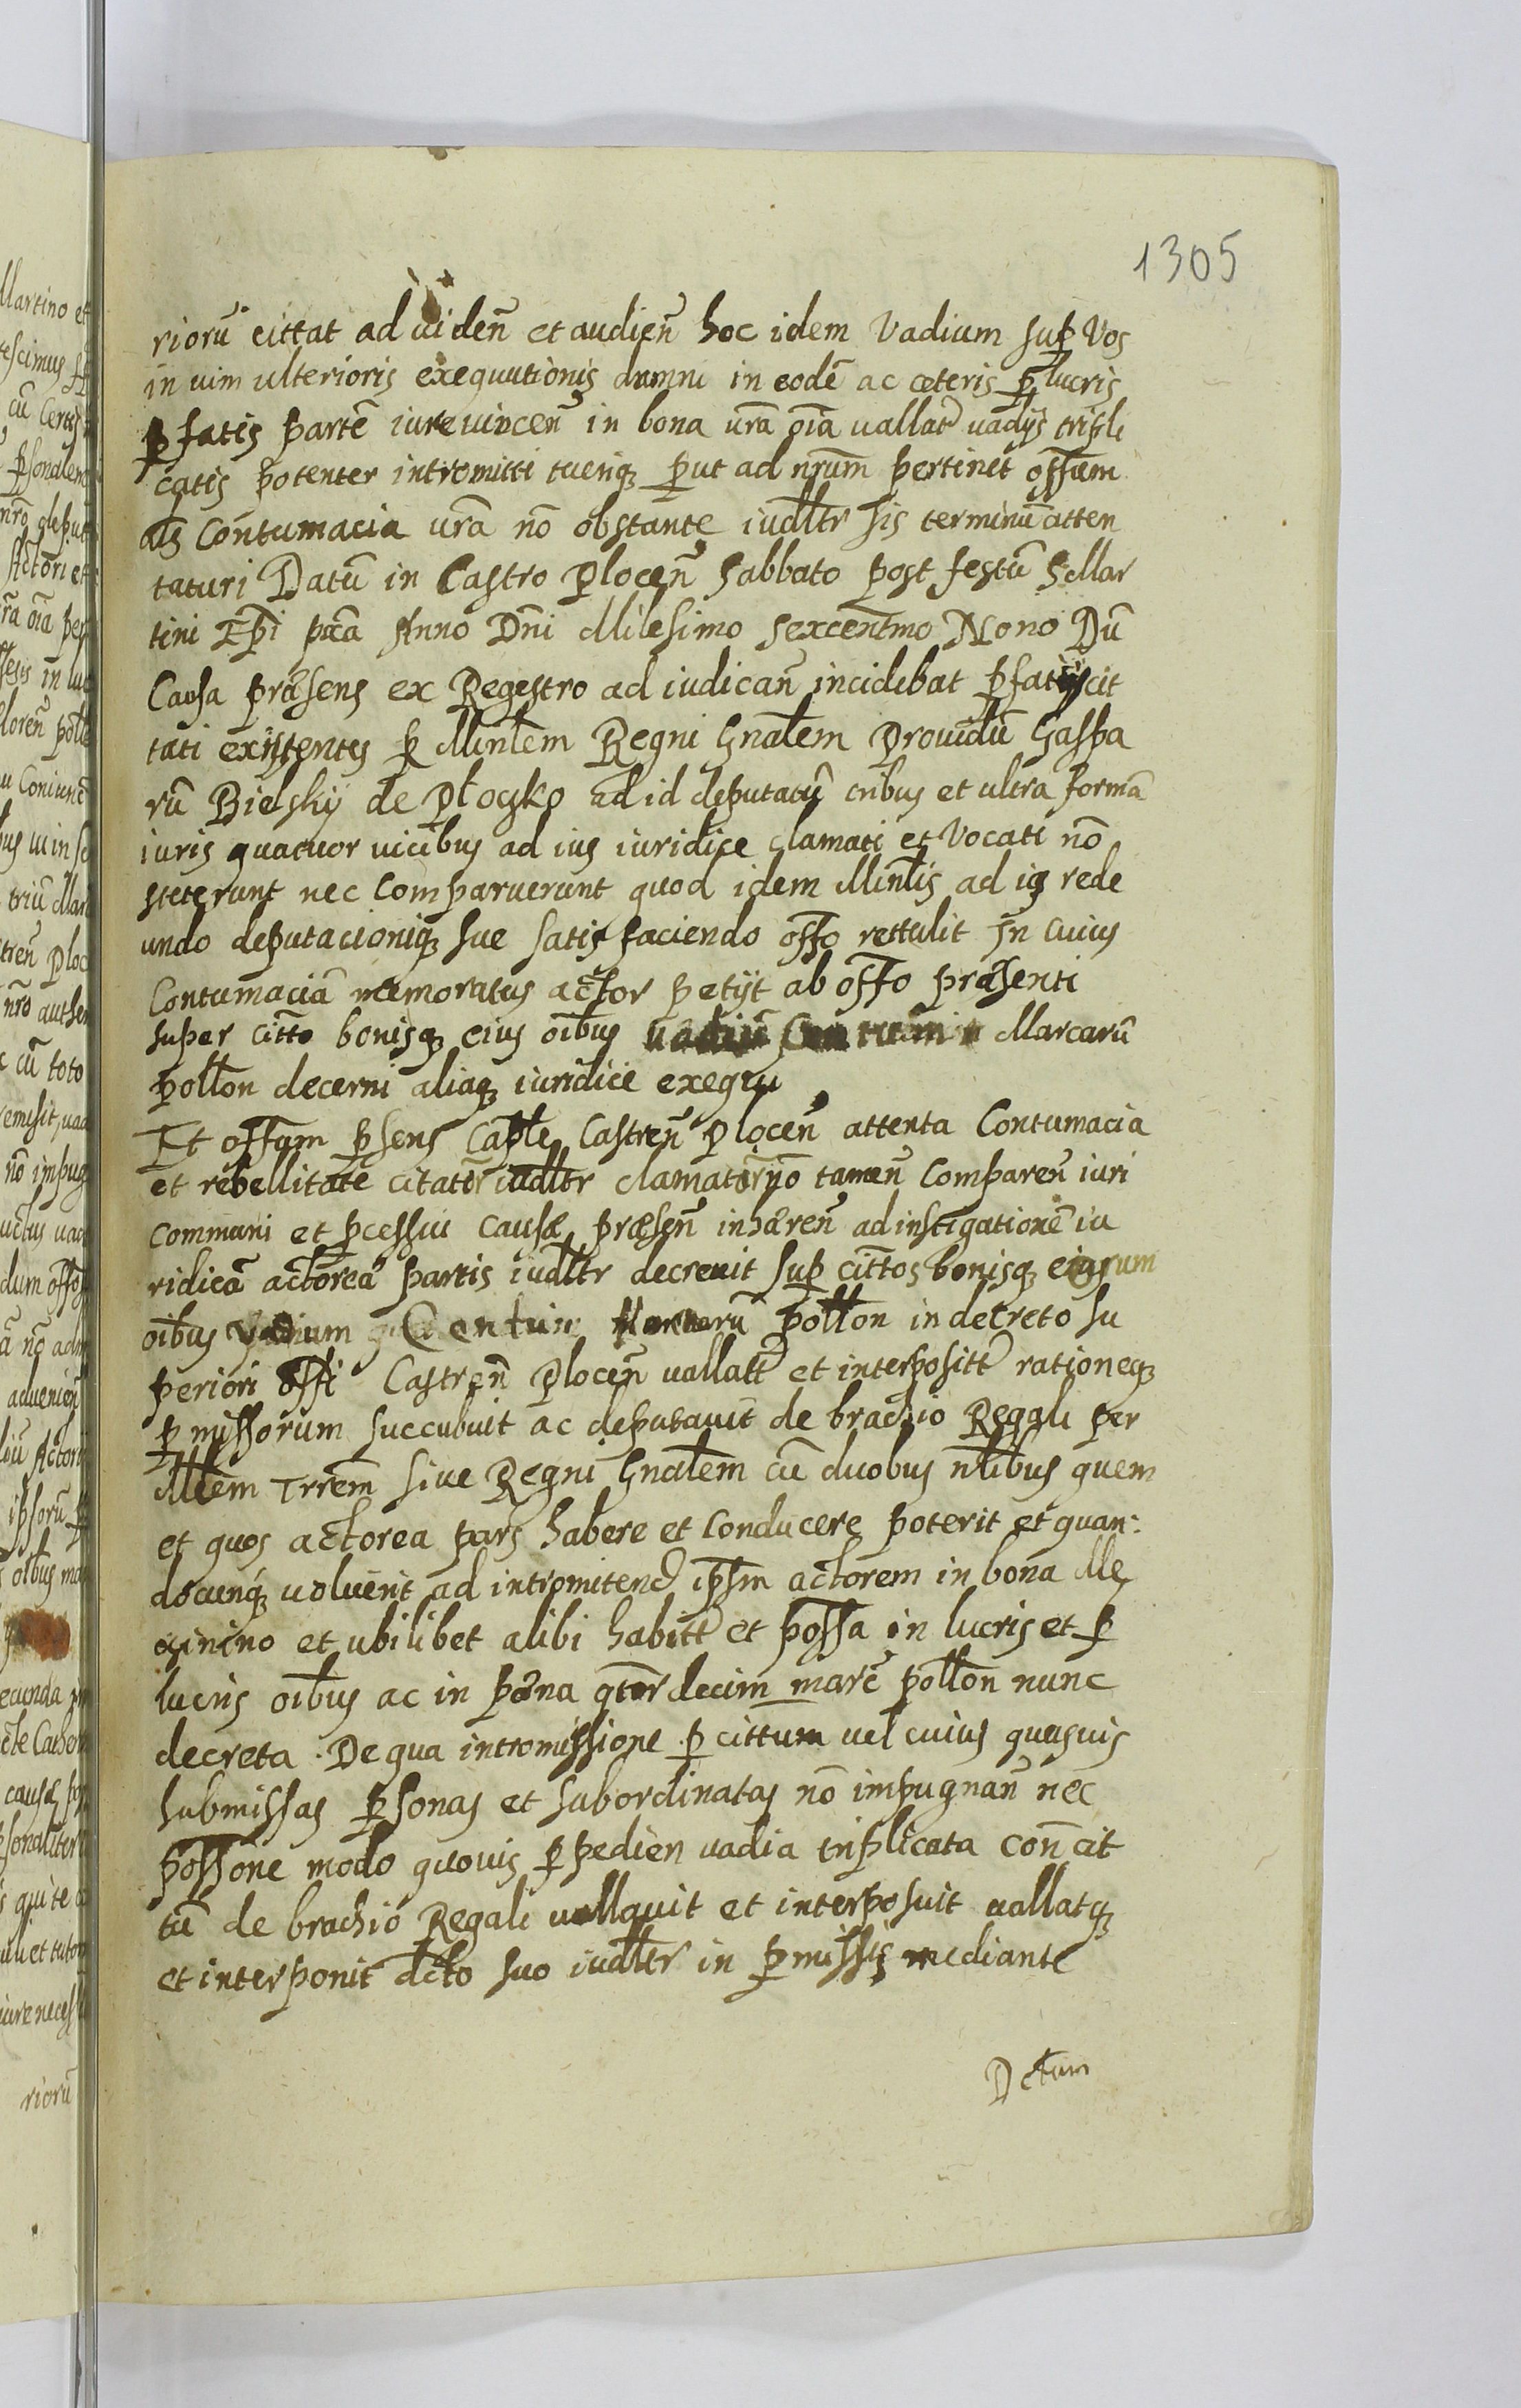 1305
riorū cittat ad uiden̄ et audien̄ hoc idem Vadium sup̱ Vos
in uim ulterioris exequutionis damni in eodē ac cæteris p̱lucris
p̱fatis partē iure uincen̄ in bona ūra oīa uallatʳ uadijs tripli
catis potenter intromitti tueriq; p̱ut ad nr̄um pertinet off̄um
als Contumacia ūra nō obstante iudl̄tr sis terminū atten
taturi Datū in Castro Plocen̄ Sabbato post festū S Mar
tini Ep̄i px̄a Anno Dn̄i Milesimo sexcentm̄o Nono Dū
Causa præsens ex Regestro ad iudican̄ incidebat p̱fatijs cit
tati existentes p̱ Minl̄em Regni Gnal̄em Prouidū Gaspa
rū Bielskÿ de Płocsko ad id deputatū tribus et ultra formā
iuris quatuor uicibus ad ius iuridice clamati et Vocati nō
steterunt nec Comparuerunt quod idem Minl̄is ad ius rede
undo deputacioniq; sue satisfaciendo off̄o rettulit In cuius
Contumaciā memoratus actor petijt ab off̄o præsenti
super citt̄o bonisq; eius oībus uadiū Centum Marcarū
poll̄on decerni aliaq; iuridice exequi
Et off̄um p̱sens Capl̄e Castren̄ Plocen̄ attenta Contumacia
et rebellitate citatōr̄ iudl̄tr clamatōr̄ nō tamen̄ Comparen̄ iuri
communi et p̱cessui causæ præsen̄ inhæren̄ ad instigationē iu
ridicā actoreā partis iudl̄tr decreuit sup̱ citt̄os bonisq; eiusrum
oībus Vadium Centum Marcarū poll̄on in decreto su
periori off̄i Castren̄ Plocen̄ uallatt̄ et interpositt̄ rationeq;
p̱missorum succubuit ac deputauit de brachio Regali per
Ml̄em Trr̄em siue Regni Gnal̄em cū duobus nl̄ibus quem
et quos actorea pars habere et Conducere poterit et quan:
docunq; uoluerit ad intromitend̄ ip̄sm actorem in bona Me
cinino et ubilibet alibi habitt̄ et poss̄a in lucris et p̱
lucris oībus ac in pœna qtōrdecim marc̄ poll̄on nunc
decreta . De qua intromissione p̱ cittum uel cuius quasuis
submissas p̱sonas et subordinatas nō impugnan̄ nec
poss̄one modo quouis p̱pedien uadia triplicata con̄ cit
tū de brachio Regali uallauit et interposuit uallatq;
et interponit dc̄to suo iudl̄tr in p̱missis mediante
Dctum